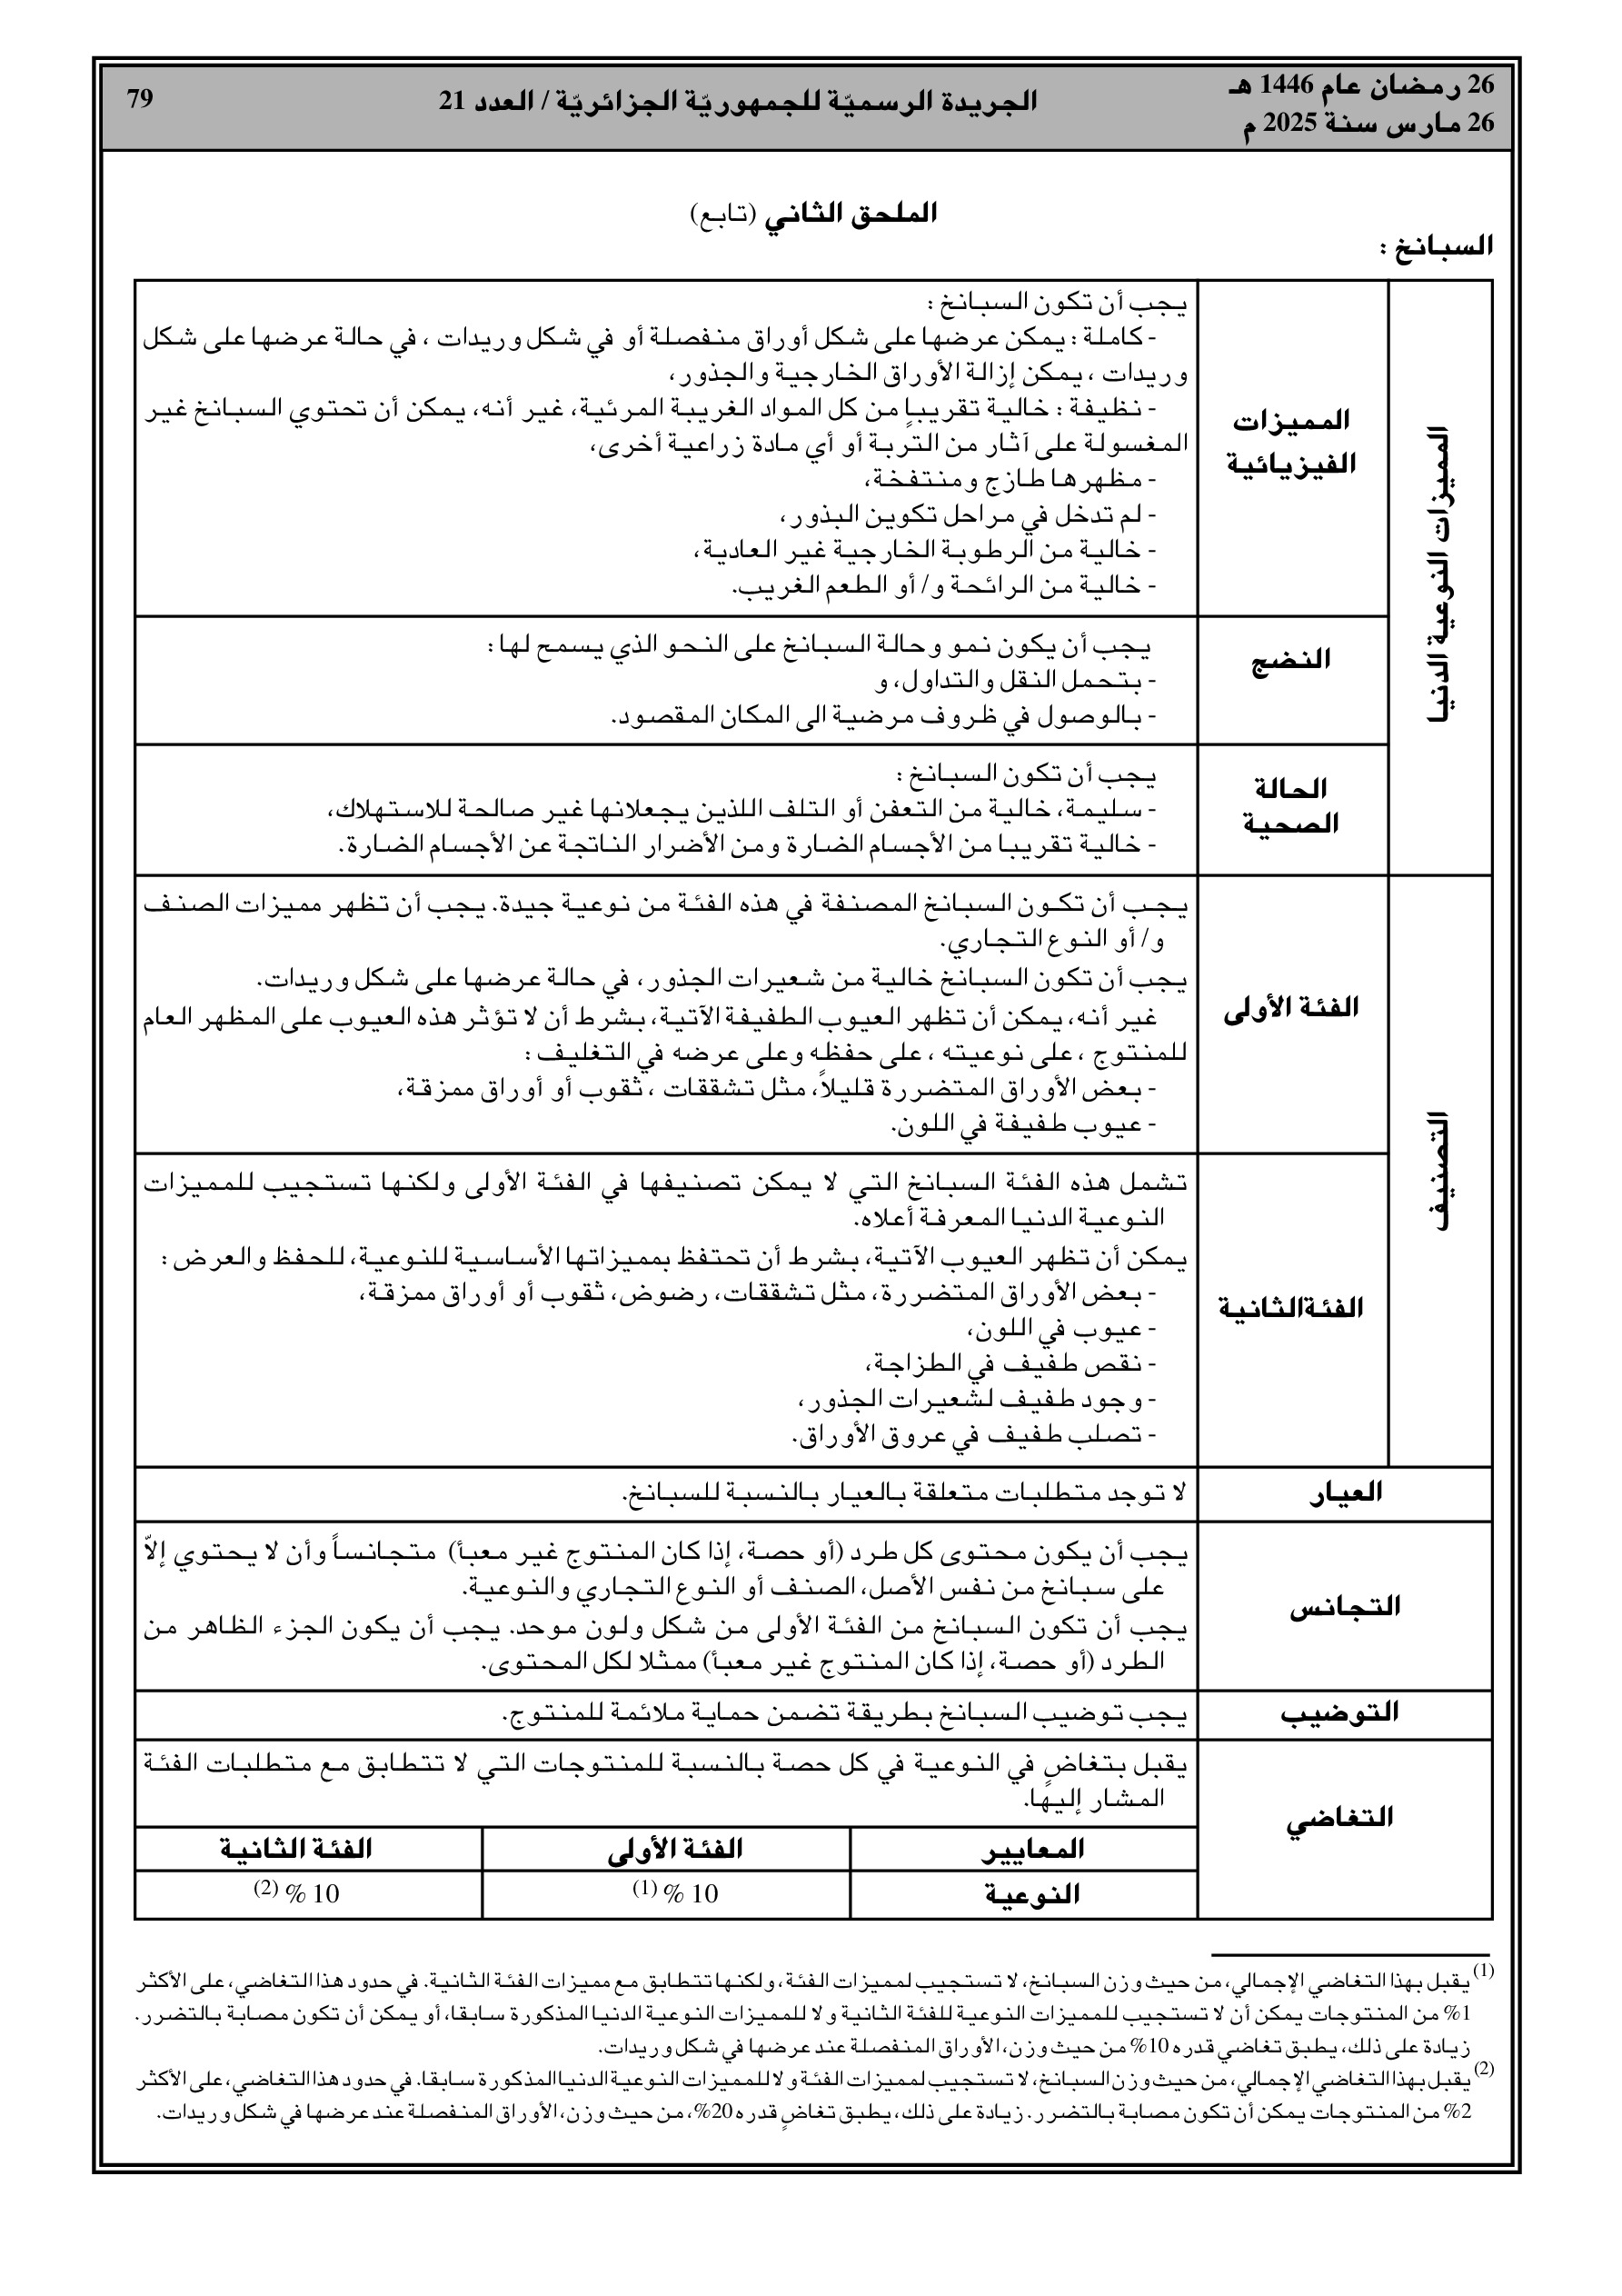 26 رمضان عام 1446 هـ
26 مارس سنة 2025 م
الجريدة الرسميّة للجمهوريّة الجزائريّة / العدد 21
79
الملحق الثاني (تابع)
السبانخ :
المميزات النوعية الدنيا
المميزات
الفيزيائية
يجب أن تكون السبانخ :
- كاملة : يمكن عرضها على شكل أوراق منفصلة أو في شكل وريدات ، في حالة عرضها على شكل
وريدات ، يمكن إزالة الأوراق الخارجية والجذور،
- نظيفة : خالية تقريبا من كل المواد الغريبة المرئية، غير أنه، يمكن أن تحتوي السبانخ غير
المغسولة على آثار من التربة أو أي مادة زراعية أخرى،
- مظهرها طازج ومنتفخة،
- لم تدخل في مراحل تكوين البذور،
- خالية من الرطوبة الخارجية غير العادية،
- خالية من الرائحة و/ أو الطعم الغريب.
النضج
يجب أن يكون نمو وحالة السبانخ على النحو الذي يسمح لها :
- بتحمل النقل والتداول، و
- بالوصول في ظروف مرضية الى المكان المقصود.
الحالة
الصحية
يجب أن تكون السبانخ :
- سليمة، خالية من التعفن أو التلف اللذين يجعلانها غير صالحة للاستهلاك،
- خالية تقريبا من الأجسام الضارة ومن الأضرار الناتجة عن الأجسام الضارة.
التصنيف
الفئة الأولى
يجب أن تكون السبانخ المصنفة في هذه الفئة من نوعية جيدة. يجب أن تظهر مميزات الصنف
و/ أو النوع التجاري.
يجب أن تكون السبانخ خالية من شعيرات الجذور، في حالة عرضها على شكل وريدات.
غير أنه، يمكن أن تظهر العيوب الطفيفة الآتية، بشرط أن لا تؤثر هذه العيوب على المظهر العام
للمنتوج ، على نوعيته ، على حفظه وعلى عرضه في التغليف :
- بعض الأوراق المتضررة قليلاً، مثل تشققات ، ثقوب أو أوراق ممزقة،
- عيوب طفيفة في اللون.
الفئةالثانية
تشمل هذه الفئة السبانخ التي لا يمكن تصنيفها في الفئة الأولى ولكنها تستجيب للمميزات
النوعية الدنيا المعرفة أعلاه.
يمكن أن تظهر العيوب الآتية، بشرط أن تحتفظ بمميزاتها الأساسية للنوعية، للحفظ والعرض :
- بعض الأوراق المتضررة، مثل تشققات، رضوض، ثقوب أو أوراق ممزقة،
- عيوب في اللون،
- نقص طفيف في الطزاجة،
- وجود طفيف لشعيرات الجذور،
- تصلب طفيف في عروق الأوراق.
العيار
لا توجد متطلبات متعلقة بالعيار بالنسبة للسبانخ.
التجانس
يجب أن يكون محتوى كل طرد (أو حصة، إذا كان المنتوج غير معبأ) متجانساً وأن لا يحتوي إلاّ
على سبانخ من نفس الأصل، الصنف أو النوع التجاري والنوعية.
يجب أن تكون السبانخ من الفئة الأولى من شكل ولون موحد. يجب أن يكون الجزء الظاهر من
الطرد (أو حصة، إذا كان المنتوج غير معبأ) ممثلا لكل المحتوى.
التوضيب
يجب توضيب السبانخ بطريقة تضمن حماية ملائمة للمنتوج.
التغاضي
يقبل بتغاضٍ في النوعية في كل حصة بالنسبة للمنتوجات التي لا تتطابق مع متطلبات الفئة
المشار إليها.
المعايير
الفئة الأولى
الفئة الثانية
النوعية
10 % (1)
10 % (2)
(1) يقبل بهذا التغاضي الإجمالي، من حيث وزن السبانخ، لا تستجيب لمميزات الفئة، ولكنها تتطابق مع مميزات الفئة الثانية. في حدود هذا التغاضي، على الأكثر
1% من المنتوجات يمكن أن لا تستجيب للمميزات النوعية للفئة الثانية ولا للمميزات النوعية الدنيا المذكورة سابقا، أو يمكن أن تكون مصابة بالتضرر.
زيادة على ذلك، يطبق تغاضي قدره 10% من حيث وزن، الأوراق المنفصلة عند عرضها في شكل وريدات.
(2) يقبل بهذا التغاضي الإجمالي، من حيث وزن السبانخ، لا تستجيب لمميزات الفئة ولا للمميزات النوعية الدنيا المذكورة سابقا. في حدود هذا التغاضي، على الأكثر
2% من المنتوجات يمكن أن تكون مصابة بالتضرر. زيادة على ذلك، يطبق تغاضٍ قدره 20%، من حيث وزن، الأوراق المنفصلة عند عرضها في شكل وريدات.